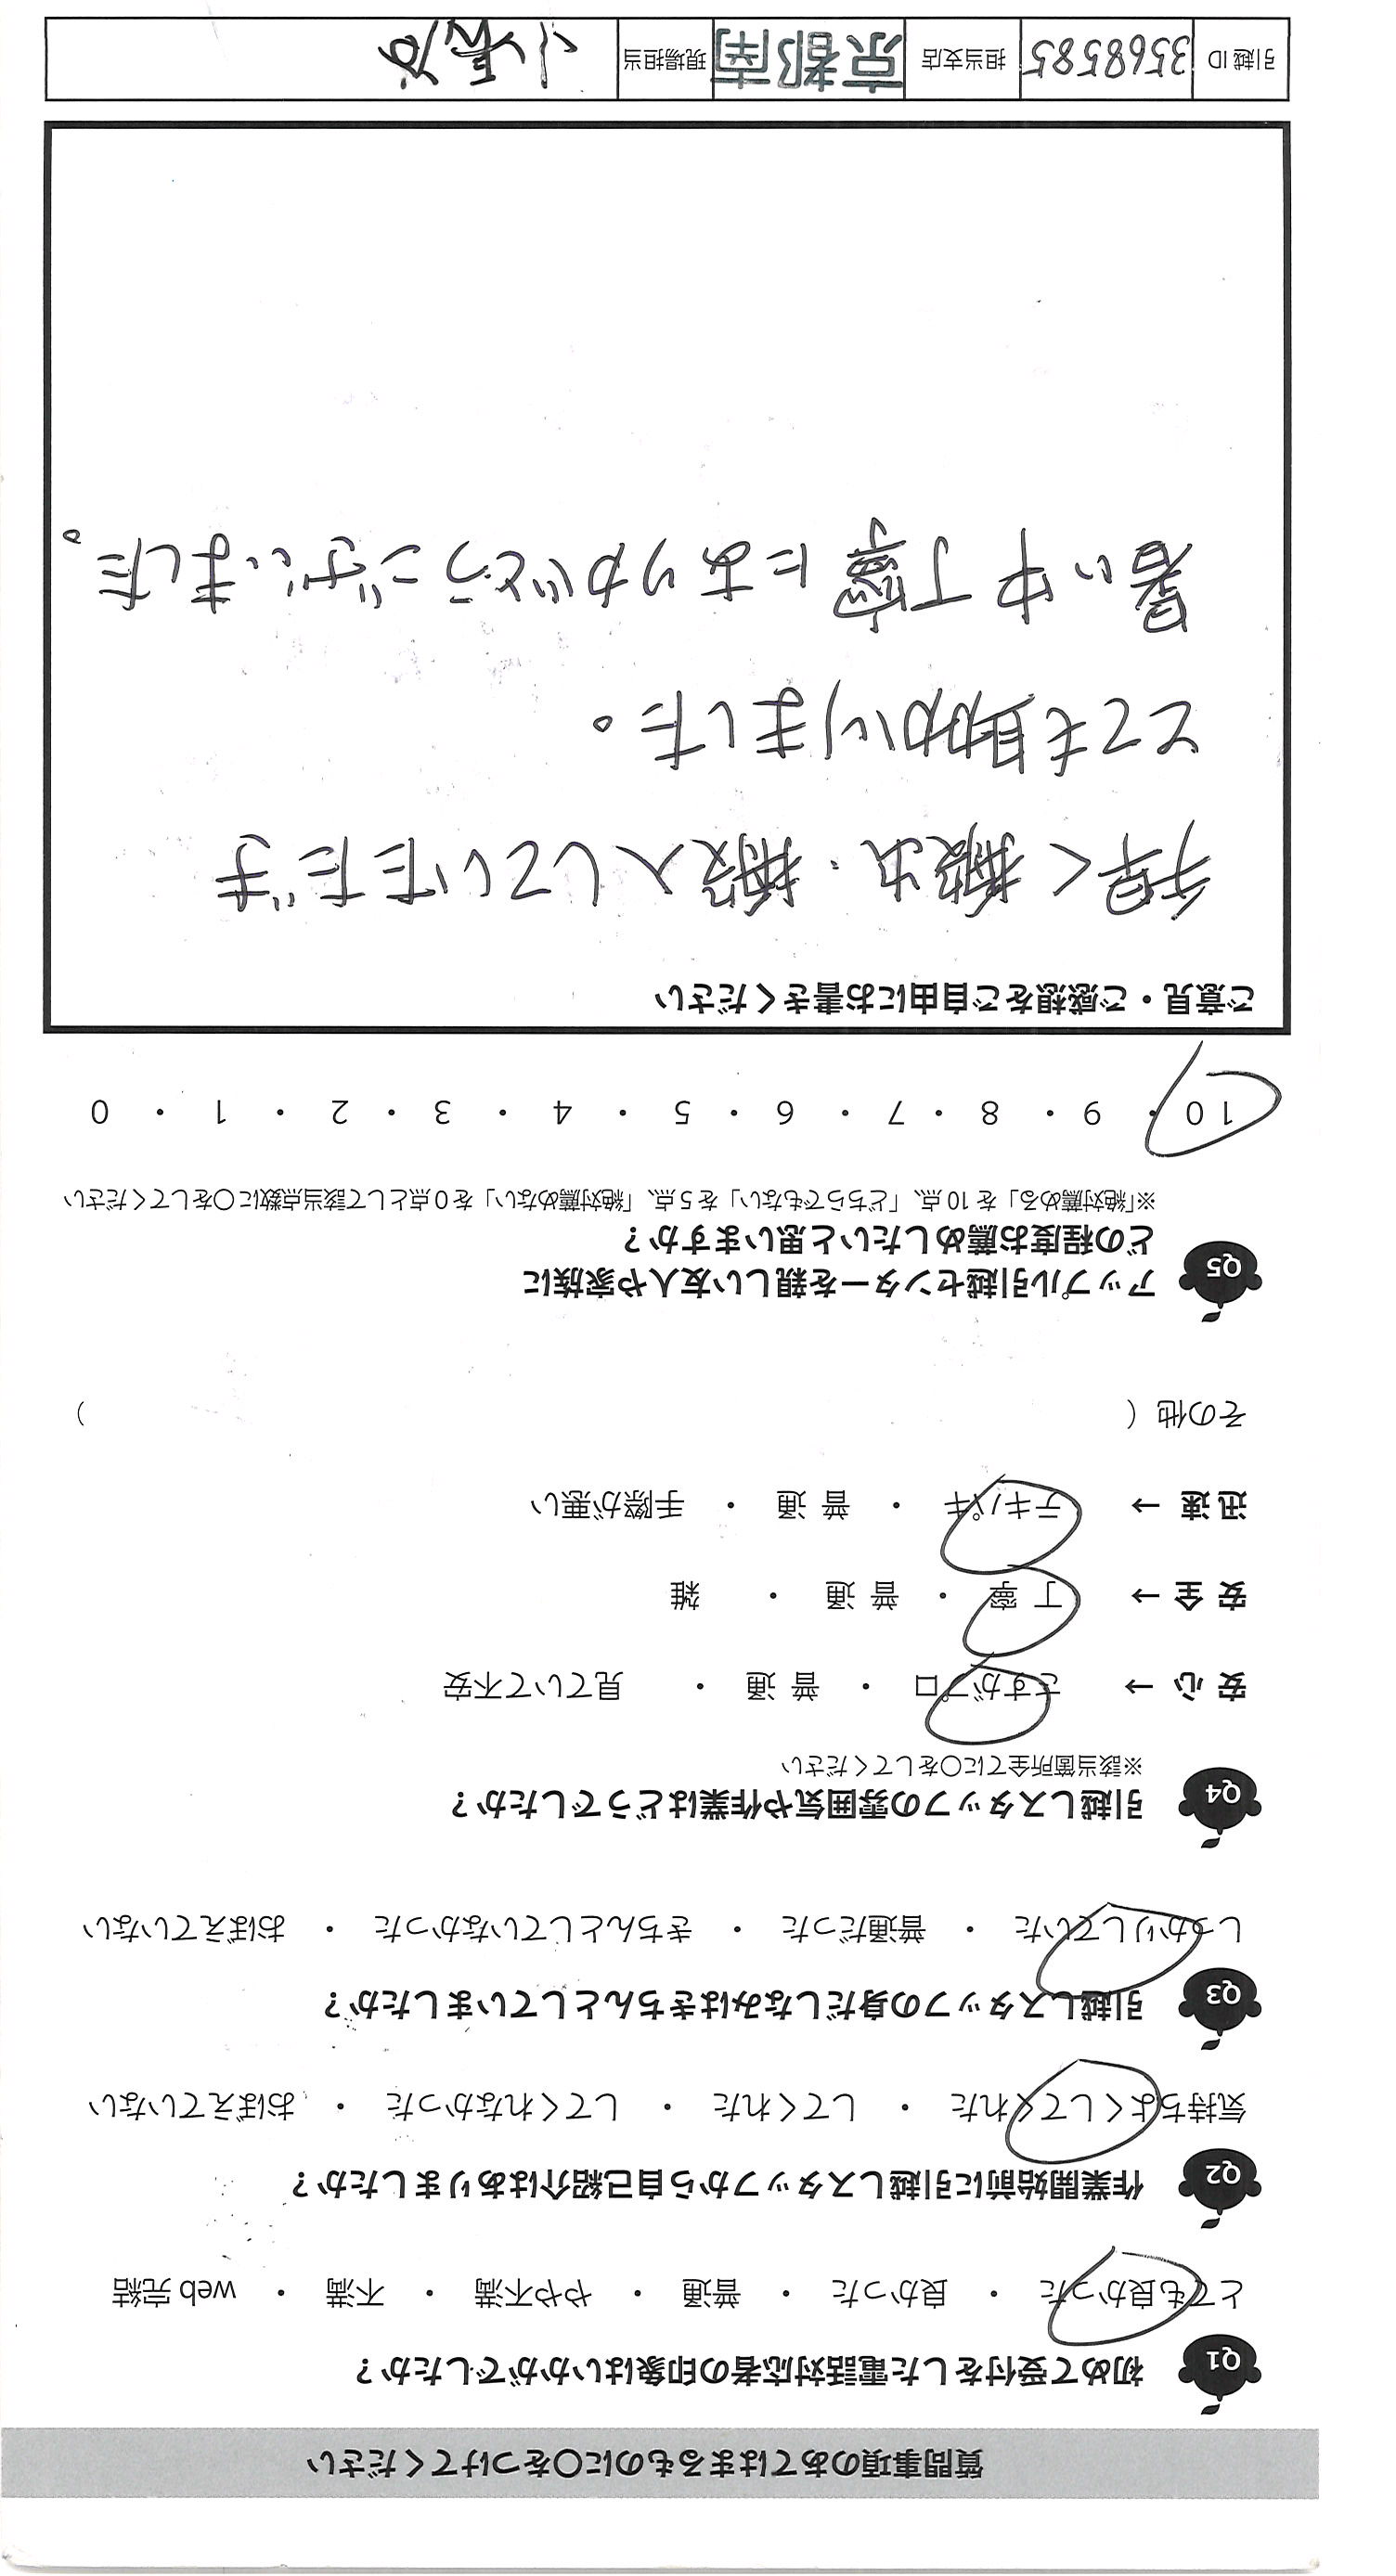 質問事項のあてはまるものに〇をつけてください
Q1 初めて受付をした電話対応者の印象はいかがでしたか？
とても良かった ・ 良かった ・ 普通 ・ やや不満 ・ 不満 ・ web 完結
Q2 作業開始前に引越しスタッフから自己紹介はありましたか？
気持ちよくしてくれた ・ してくれた ・ してくれなかった ・ おぼえていない
Q3 引越しスタッフの身だしなみはきちんとしていましたか？
しっかりしていた ・ 普通だった ・ きちんとしていなかった ・ おぼえていない
Q4 引越しスタッフの雰囲気や作業はどうでしたか？
※該当箇所全てに〇をしてください
安 心 → さすがプロ ・ 普 通 ・ 見ていて不安
安 全 → 丁 寧 ・ 普 通 ・ 雑
迅 速 → テキパキ ・ 普 通 ・ 手際が悪い
その他（ ）
Q5 アップル引越センターを親しい友人や家族に
どの程度お薦めしたいと思いますか？
※「絶対薦める」を 10 点、「どちらでもない」を 5 点、「絶対薦めない」を 0 点として該当点数に〇をしてください
10 ・ 9 ・ 8 ・ 7 ・ 6 ・ 5 ・ 4 ・ 3 ・ 2 ・ 1 ・ 0
ご意見・ご感想をご自由にお書きください
手早く搬出・搬入していただき
とても助かりました。
暑い中丁寧にありがとうございました。
引越 ID 3568585 担当支店 京都南 現場担当 小長谷